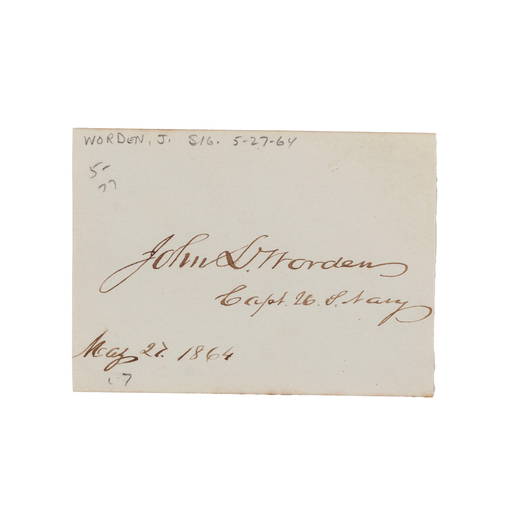 WORDEN, J. SIG. 5-27-64
5-
77
John L. Worden
Capt. U. S. Navy
May 27. 1864
7